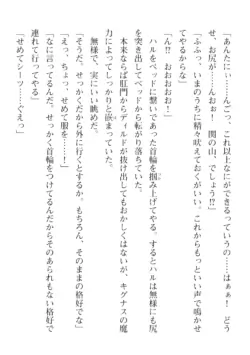 「あんたにぃ……んっ。これ以上なにができるっていうの……はぁぁ！　どう
せ、お尻が……んんっ！　関の山、でしょう!?」
「ふふっ。いまのうちに精々吠えておくがいい。これからもっといい声で鳴かせ
てやるからな」
「ん!?　おおおおお！」
　ハルをベッドに繋いであった首輪を掴み上げてやる。するとハルは無様にも尻
を突き出してベッドから転がり落ちていった。
　本来ならば肛門からディルドが抜け出してもおかしくはないが、キグナスの魔
力によってしっかりと嵌まっていた。
　無様で、実にいい眺めだ。
「だから、せっかくだから外に行くとするか。もちろん、そのままの格好でな」
「えっ、ちょっ、せめて服を……！」
「なに言ってるんだ。せっかく首輪をつけてるんだからそのあられもない格好で
連れて行ってやる」
「せめてシーツ……ぐえっ」